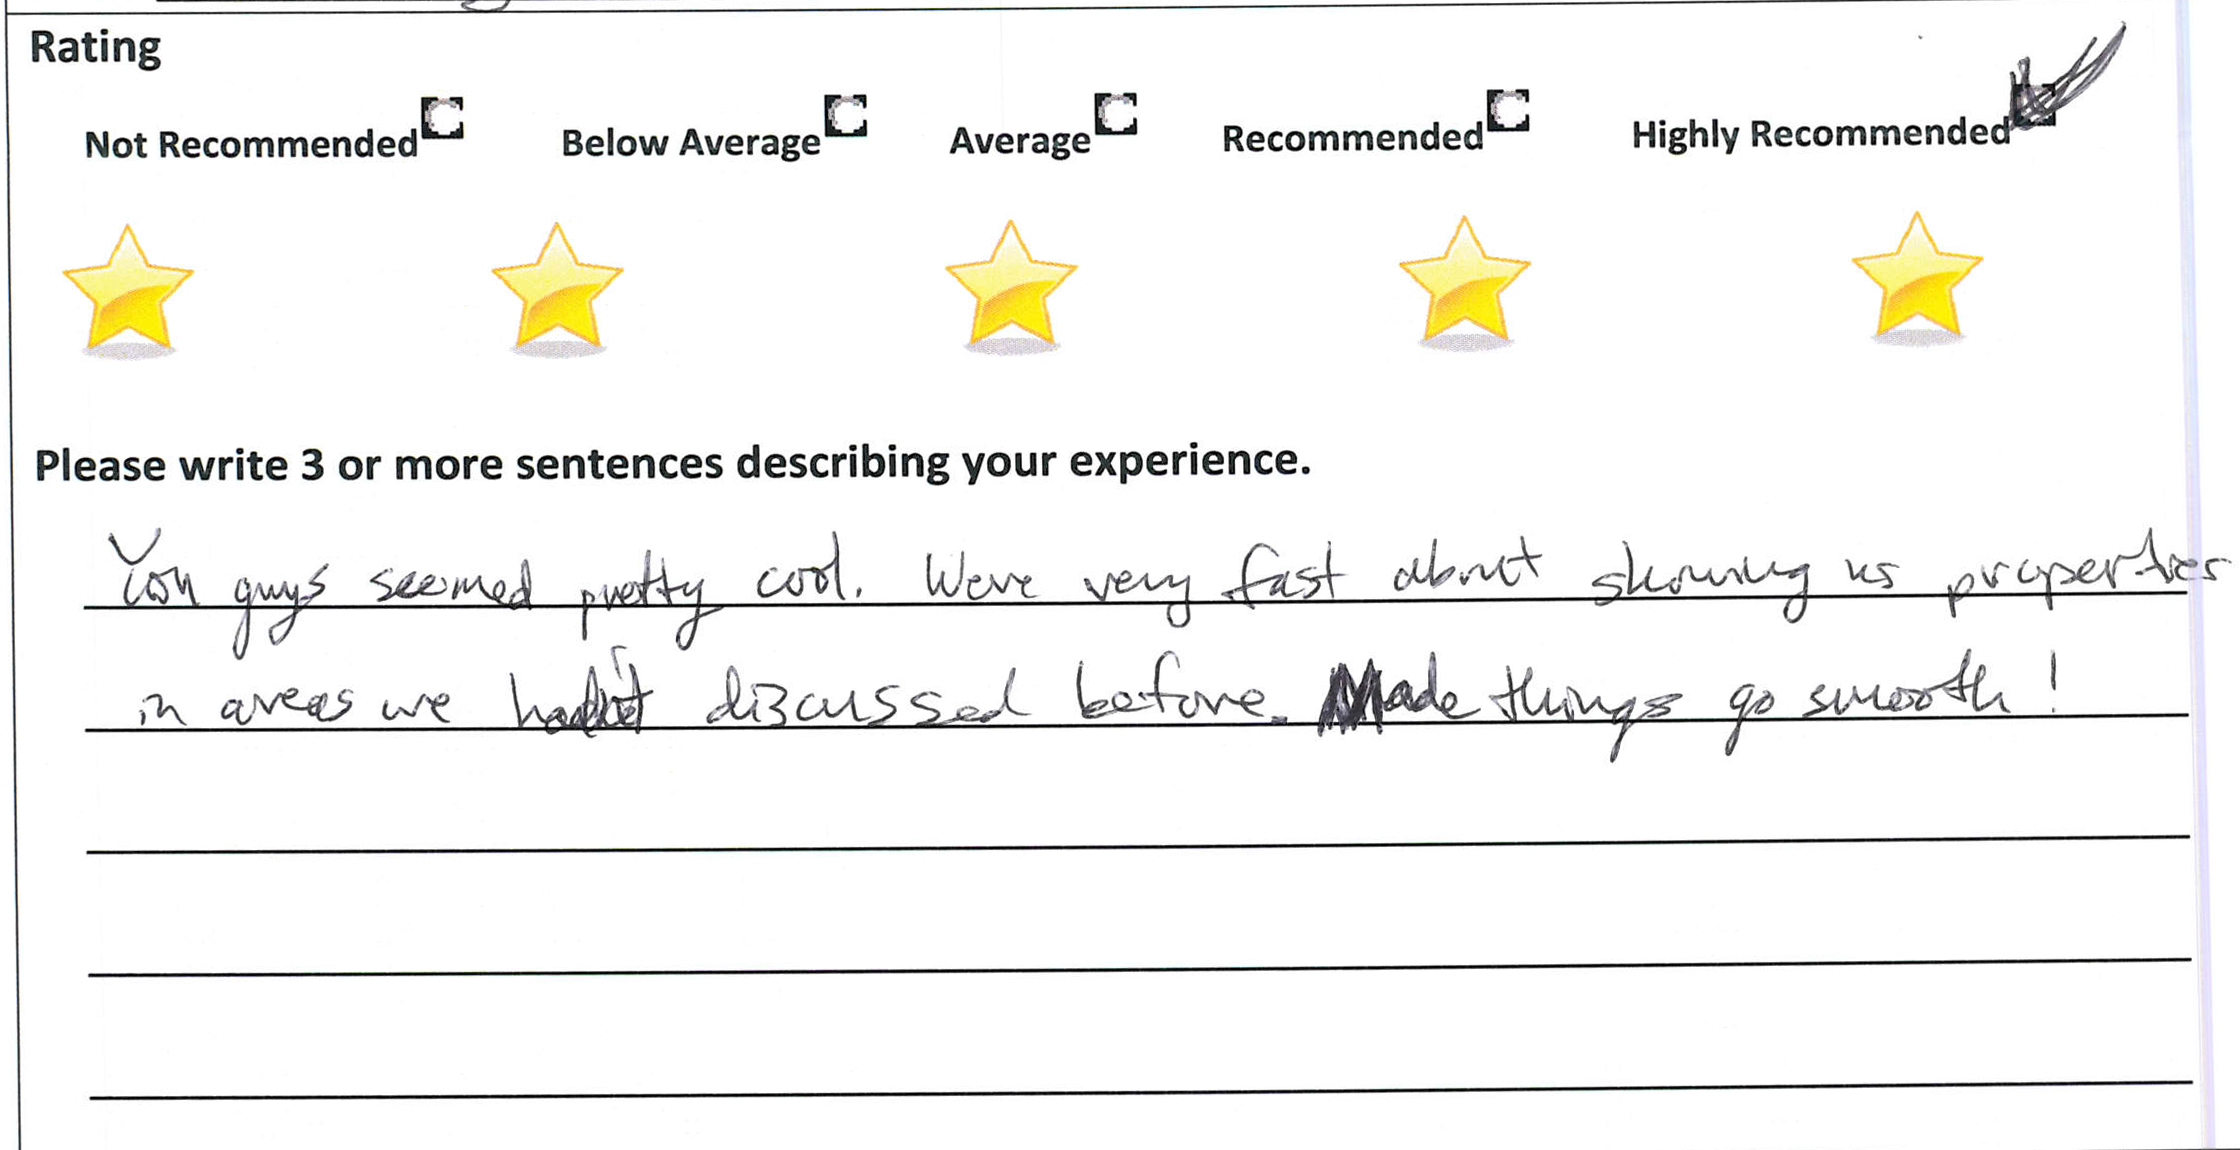 Rating
Not Recommended Below Average Average Recommended Highly Recommended
Please write 3 or more sentences describing your experience.
You guys seemed pretty cool. Were very fast about showing us properties
in areas we hadn't discussed before. Made things go smooth!